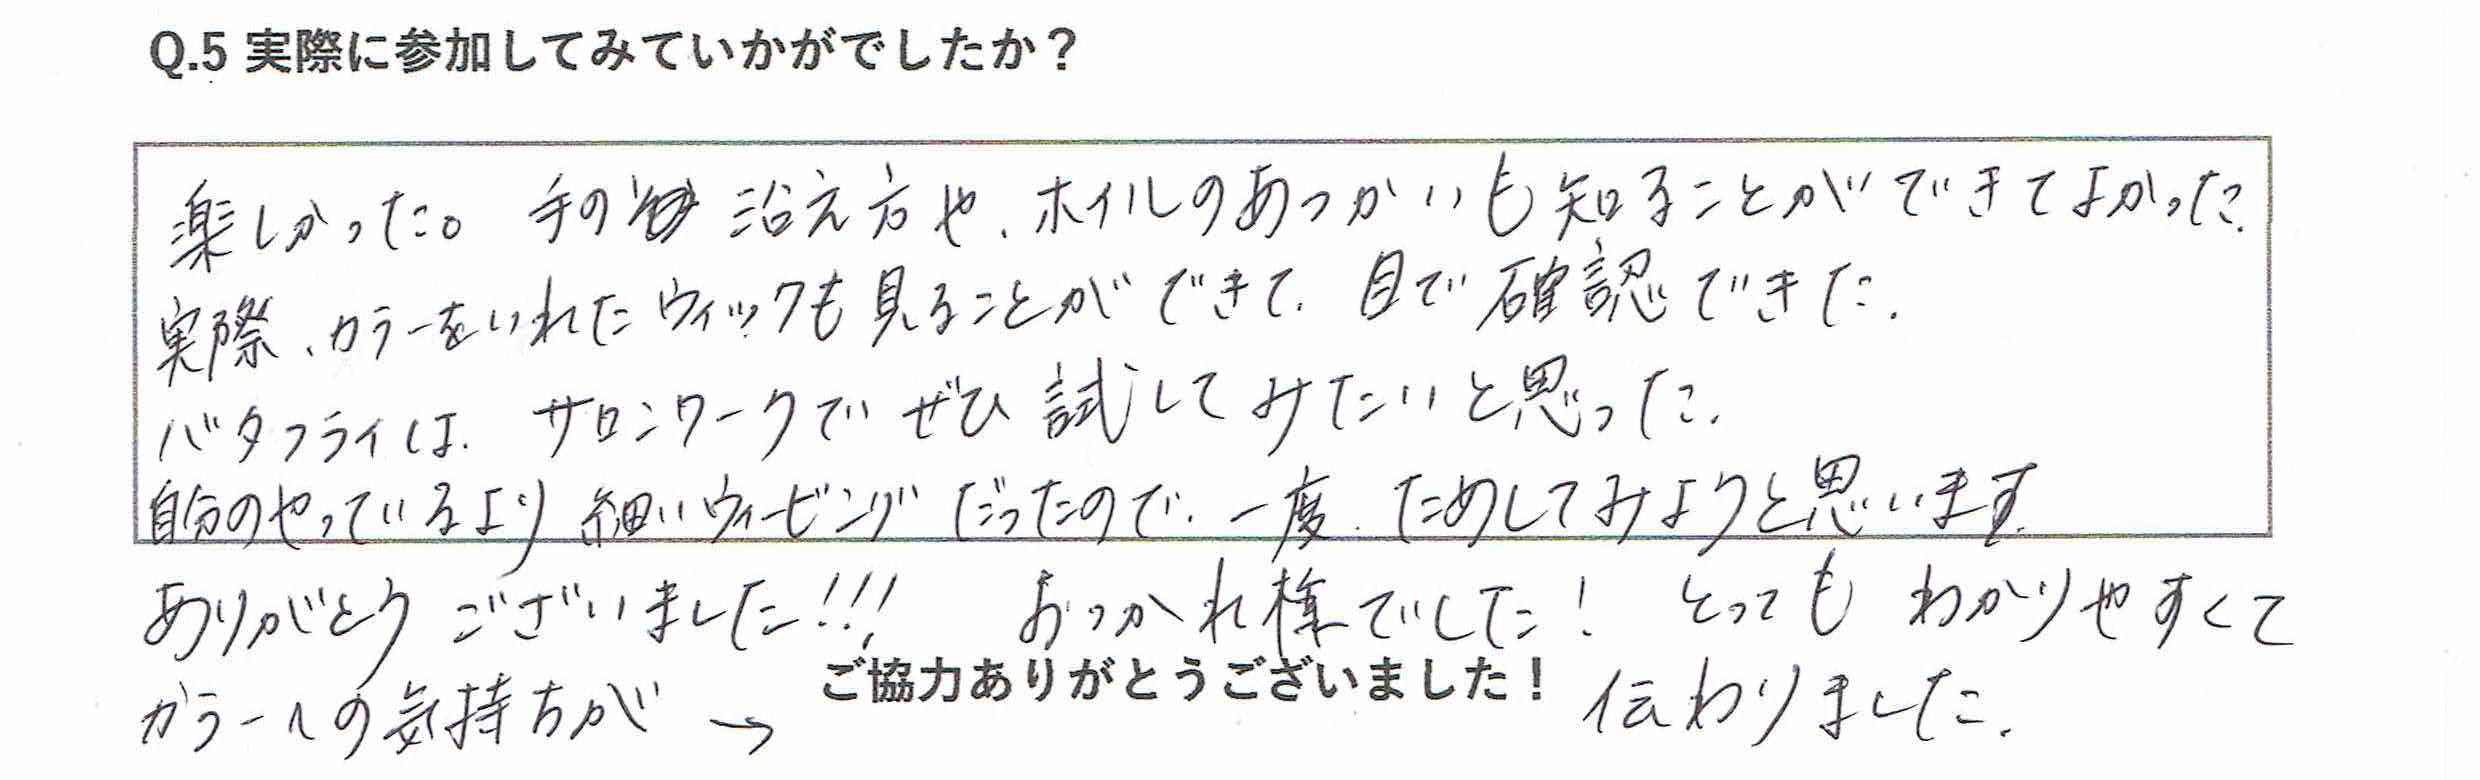 Q.5 実際に参加してみていかがでしたか？
楽しかった。手の沿え方や、ホイルのあつかいも知ることができてよかった.
実際、カラーをいれたウィックも見ることができて、目で確認できた.
バタフライは、サロンワークでぜひ試してみたいと思った.
自分のやっているより細いウィービングだったので、一度、ためしてみようと思います.
ありがとうございました!!! おつかれ様でした! とってもわかりやすくて
カラーへの気持ちが → 伝わりました.
ご協力ありがとうございました！